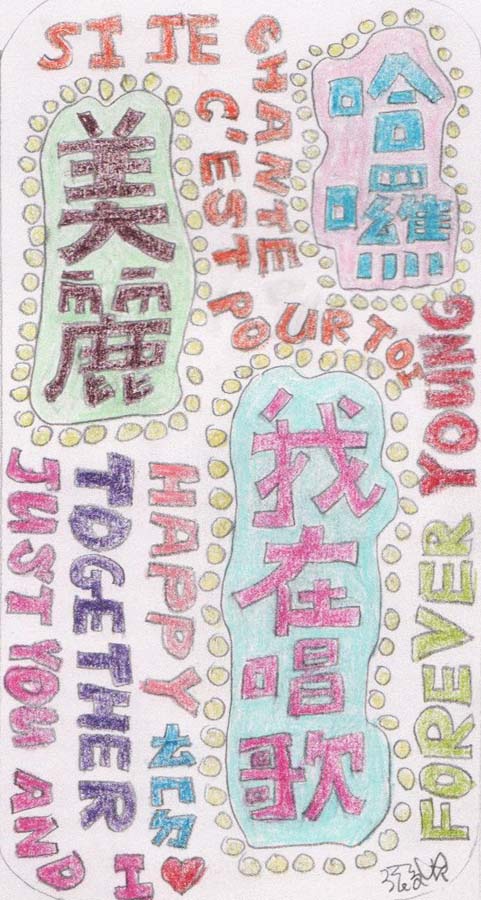 SI JE CHANTE
C'EST POUR TOI
哈囉
美麗
FOREVER YOUNG
我在唱歌
HAPPY
TOGETHER
JUST YOU AND I